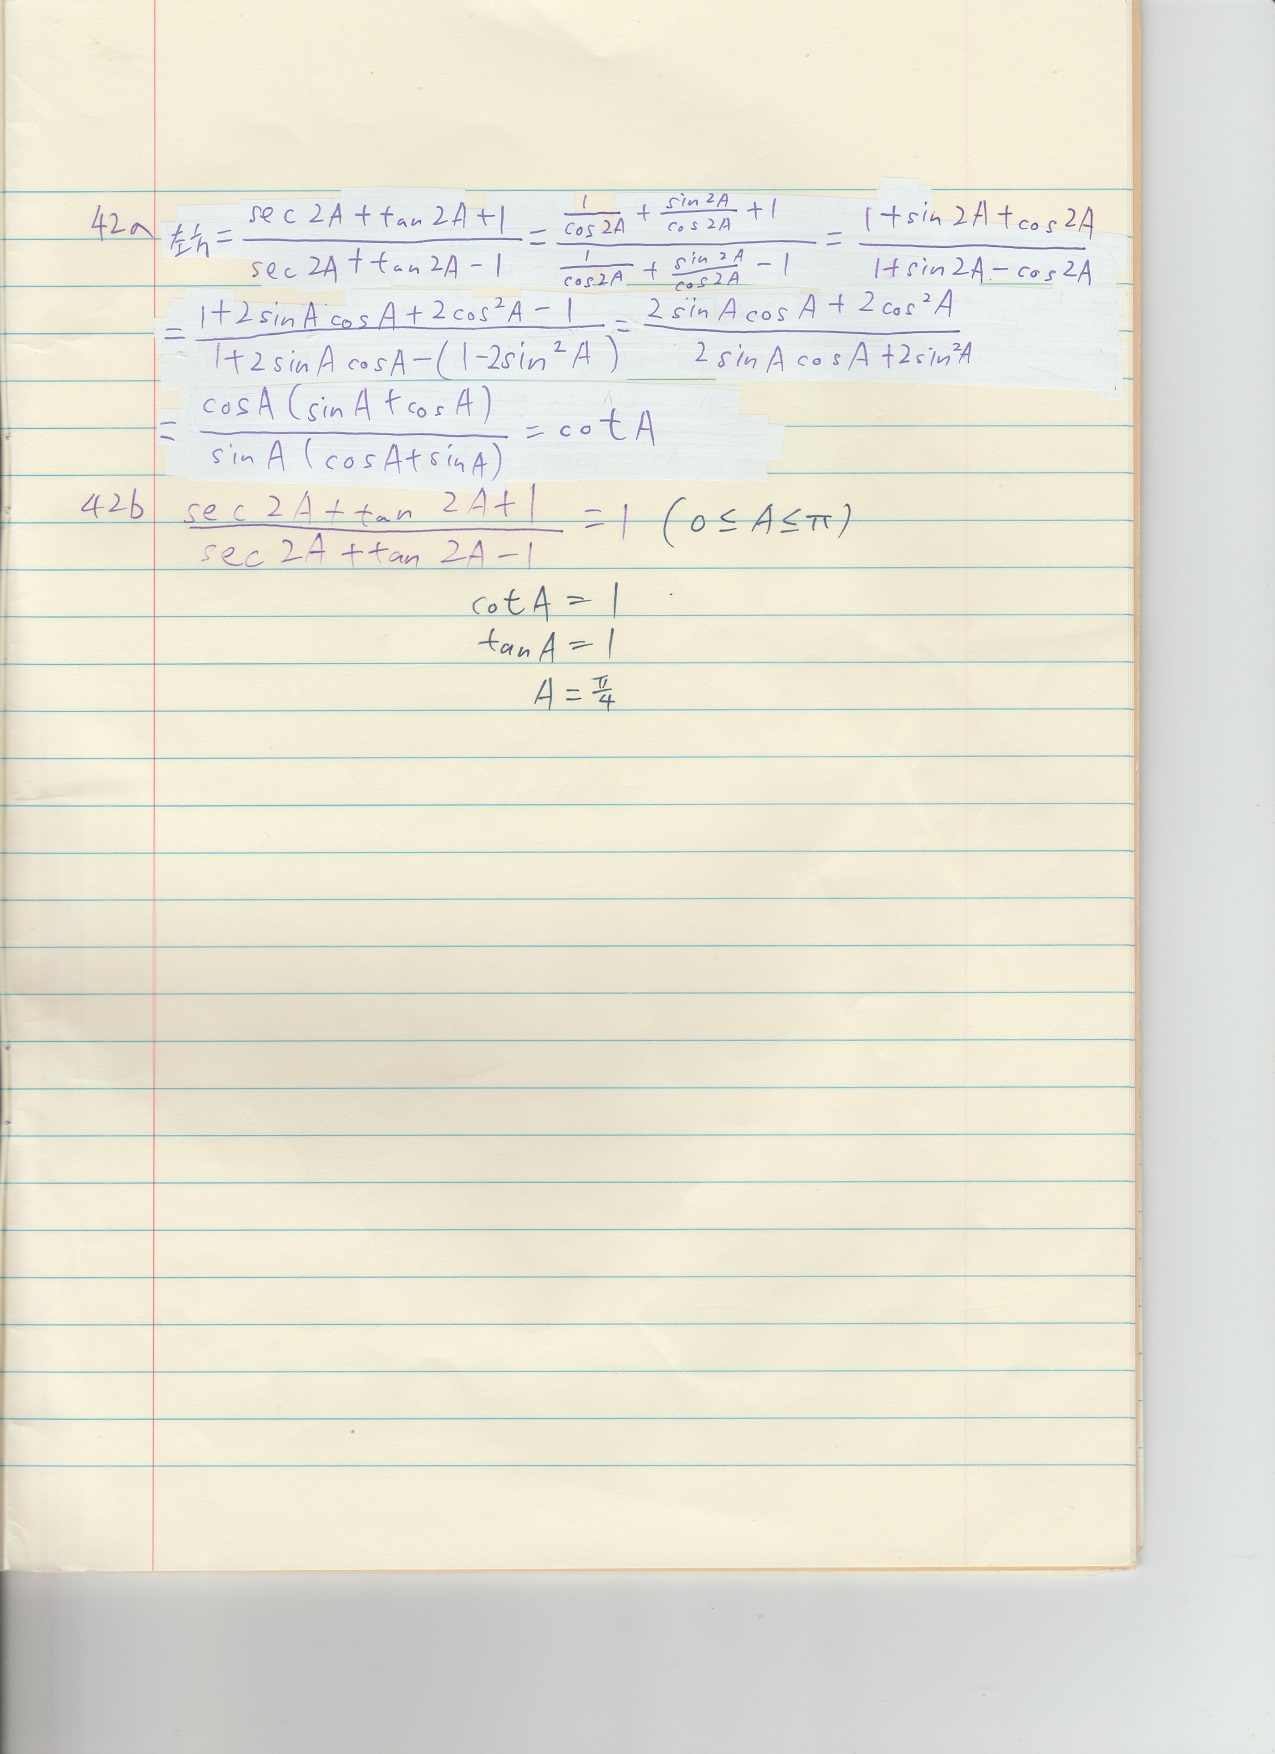 42a 左方 = (sec 2A + tan 2A + 1)/(sec 2A + tan 2A - 1) = (1/cos 2A + sin 2A/cos 2A + 1)/(1/cos 2A + sin 2A/cos 2A - 1) = (1 + sin 2A + cos 2A)/(1 + sin 2A - cos 2A)
= (1 + 2 sin A cos A + 2 cos² A - 1)/(1 + 2 sin A cos A - (1 - 2 sin² A)) = (2 sin A cos A + 2 cos² A)/(2 sin A cos A + 2 sin² A)
= (cos A (sin A + cos A))/(sin A (cos A + sin A)) = cot A
42b (sec 2A + tan 2A + 1)/(sec 2A + tan 2A - 1) = 1 (0 ≤ A ≤ π)
cot A = 1
tan A = 1
A = π/4